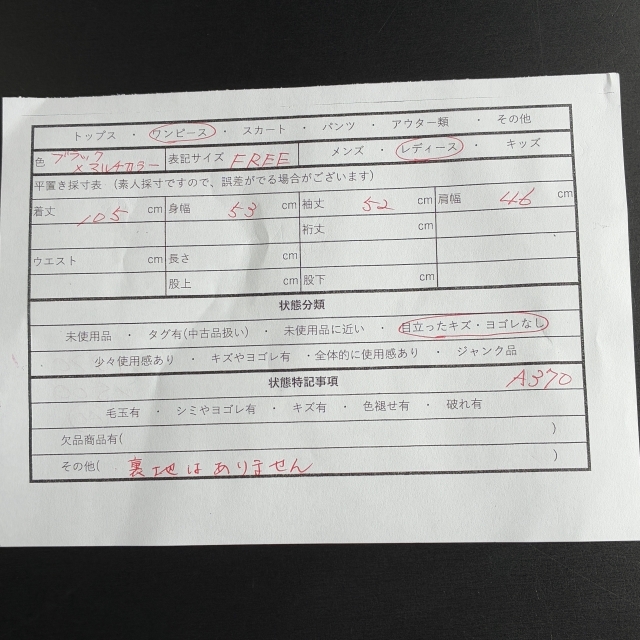 トップス ・ ワンピース ・ スカート ・ パンツ ・ アウター類 ・ その他
色 ブラック×マルチカラー 表記サイズ FREE メンズ ・ レディース ・ キッズ
平置き採寸表 (素人採寸ですので、誤差がでる場合がございます)
着丈 105 cm 身幅 53 cm 袖丈 52 cm 肩幅 46 cm
裄丈 cm
ウエスト cm 長さ cm
股上 cm 股下 cm
状態分類
未使用品 ・ タグ有(中古品扱い) ・ 未使用品に近い ・ 目立ったキズ・ヨゴレなし
少々使用感あり ・ キズやヨゴレ有 ・全体的に使用感あり ・ ジャンク品
状態特記事項 A370
毛玉有 ・ シミやヨゴレ有 ・ キズ有 ・ 色褪せ有 ・ 破れ有
欠品商品有( )
その他( 裏地はありません )